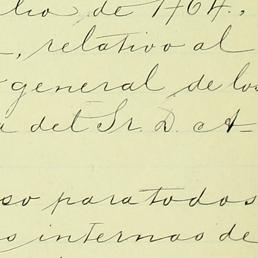 lio de 1764,
, relativo al
general de los
a del Sr. D. A-
so para todos
s internas de